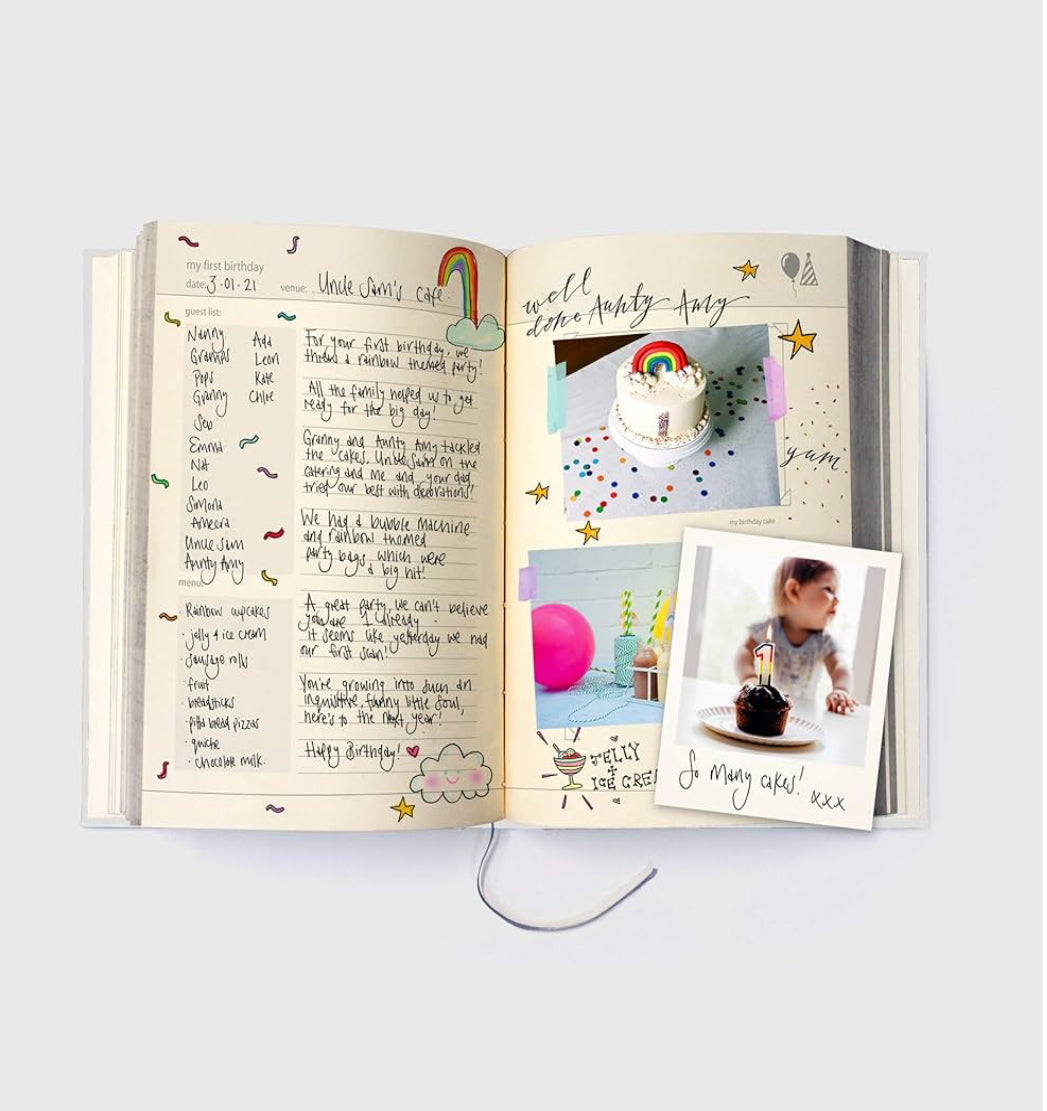 my first birthday
date: 3·01·21 venue: Uncle Sam's cafe.
guest list:
Nanny
Gramps
Pops
Granny
Seb
Emma
Nat
Leo
Simona
Ameera
Uncle Sam
Aunty Amy
Ada
Leon
Kate
Chloe
menu:
· Rainbow cupcakes
· jelly & ice cream
· sausage rolls
· fruit
· breadsticks
· pitta bread pizzas
· quiche
· chocolate milk.
For your first birthday, we
threw a rainbow themed party!
All the family helped us to get
ready for the big day!
Granny and Aunty Amy tackled
the cakes, Uncle Sam on the
catering and me and your dad
tried our best with decorations!
We had a bubble machine
and rainbow themed
party bags which were
a big hit!
A great party, we can't believe
you are 1 already -
it seems like yesterday we had
our first scan!
You're growing into such an
inquisitive, funny little soul,
here's to the next year!
Happy Birthday!
well
done Aunty Amy
1
yum
my birthday cake
JELLY
+
ICE CREA
1
So many cakes!
xxx